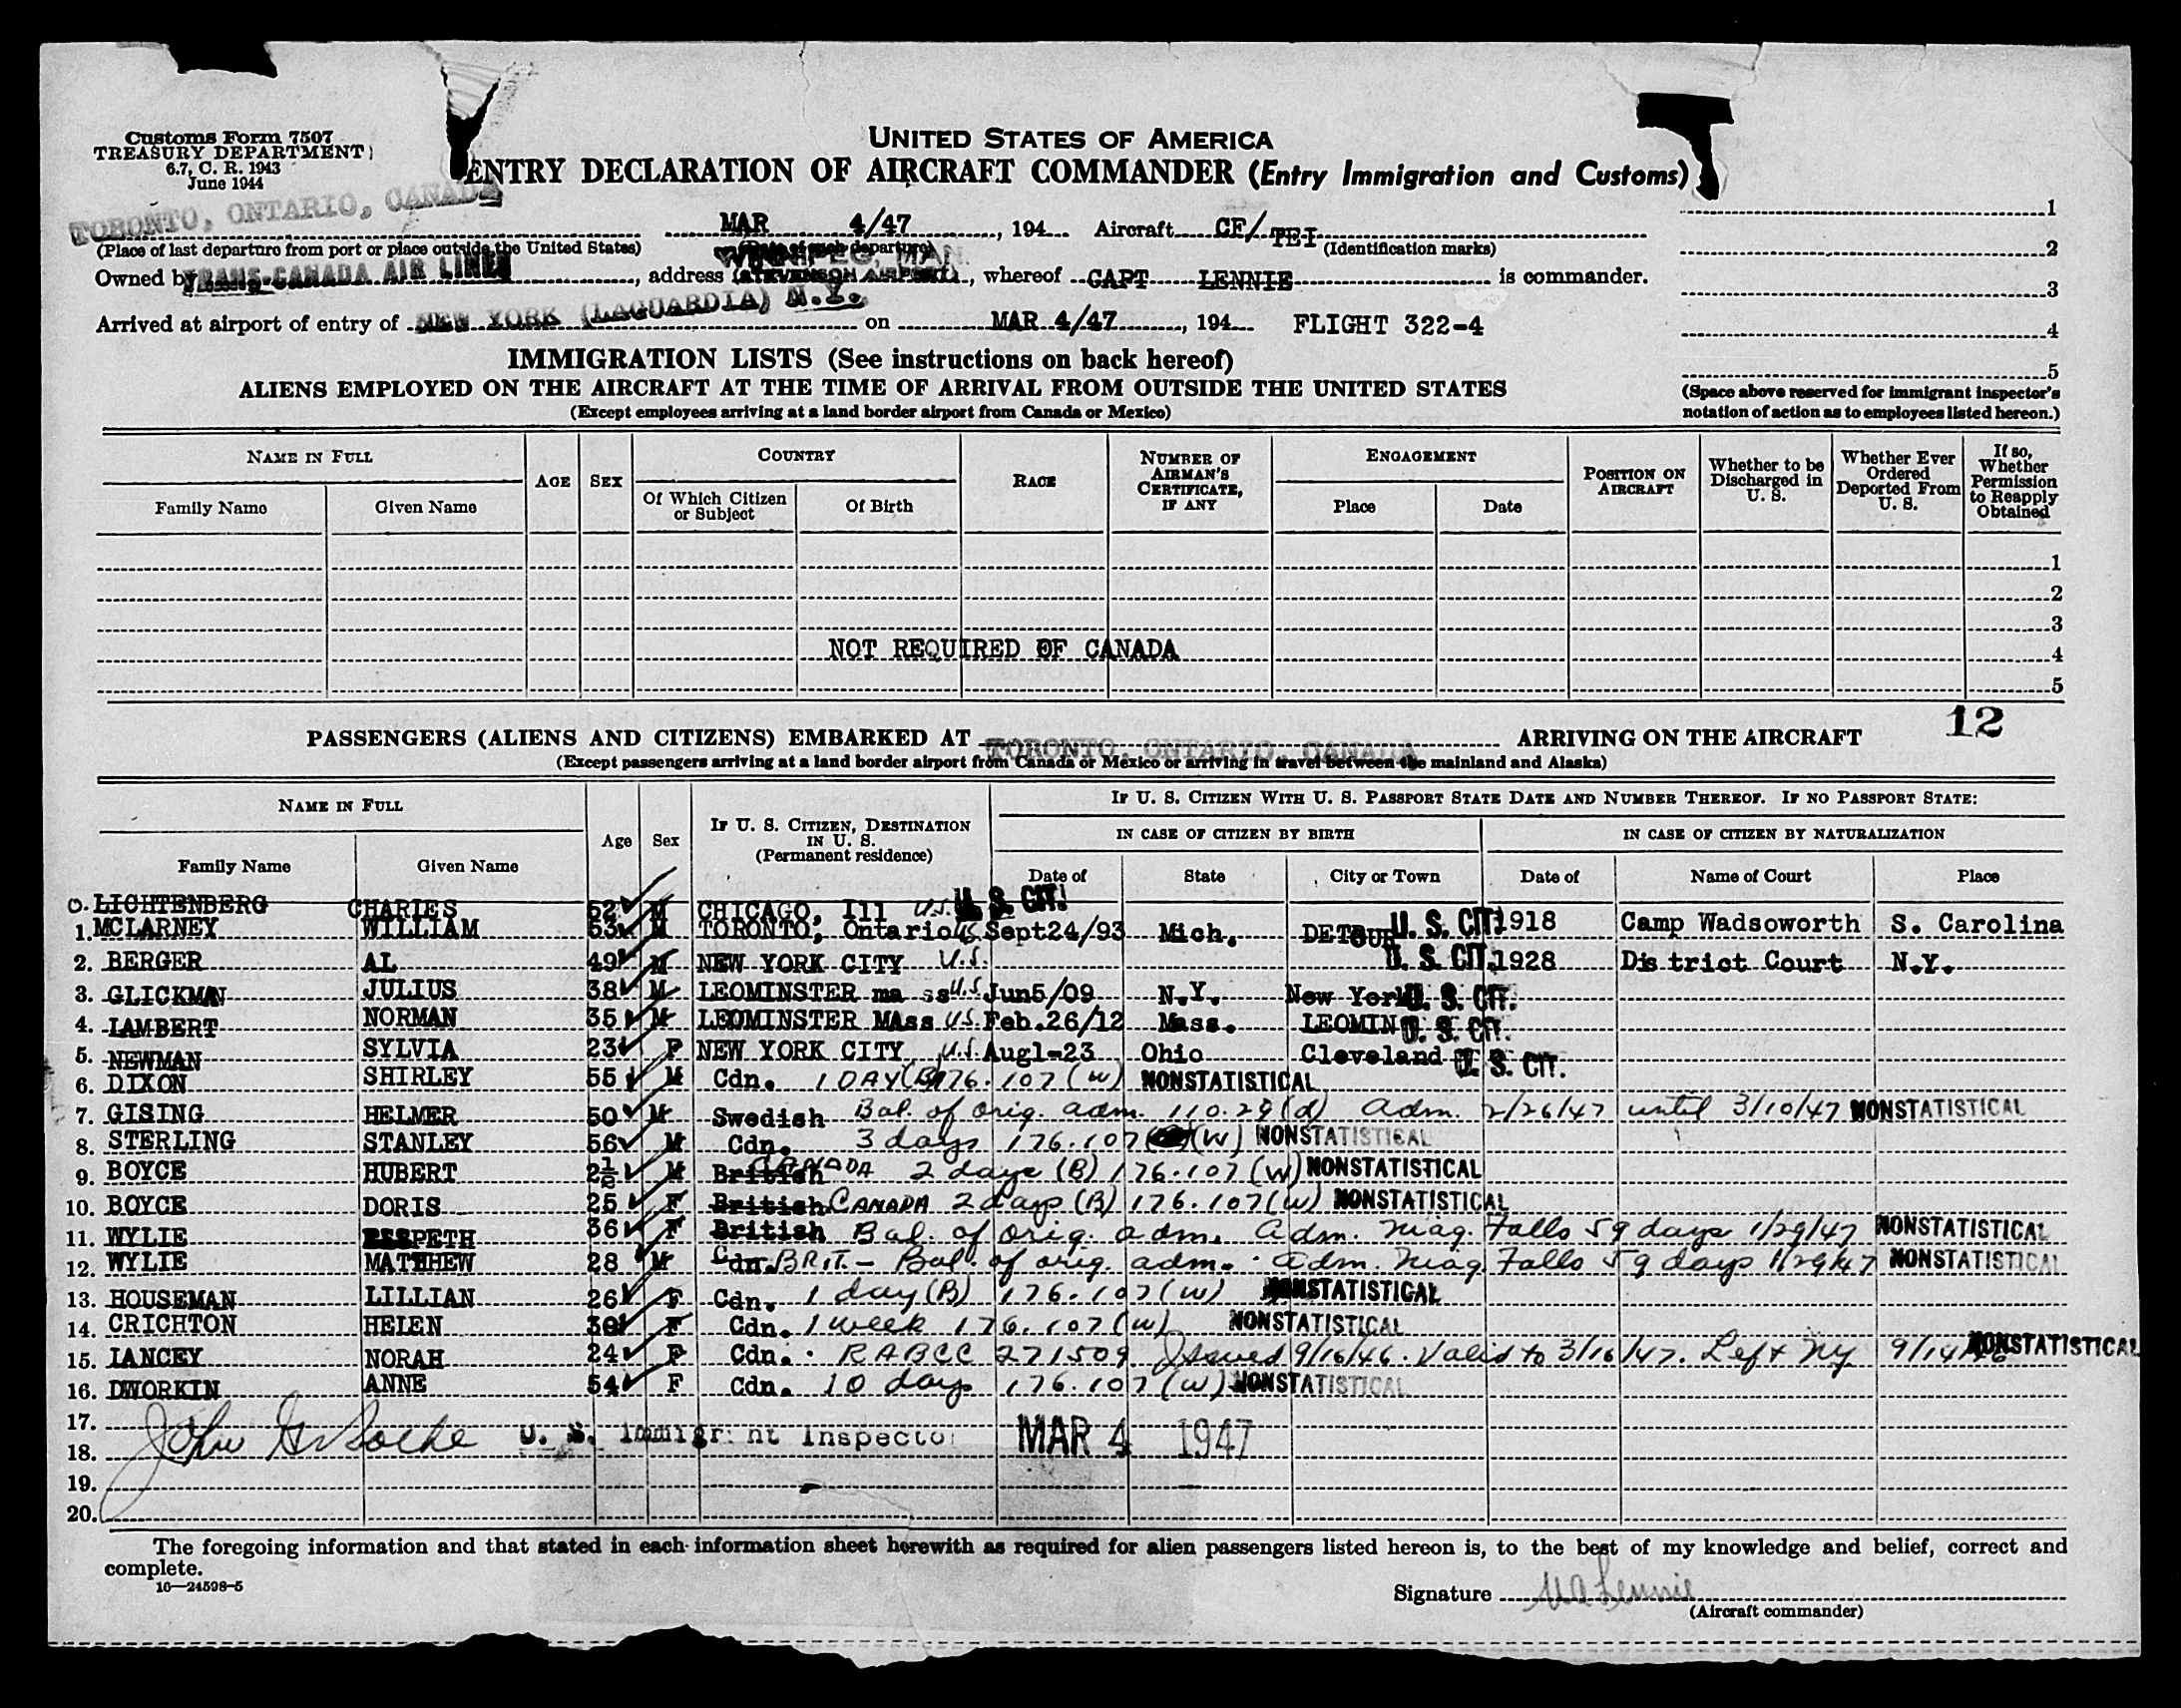 Customs Form 7507
TREASURY DEPARTMENT
6.7, C. R. 1943
June 1944
UNITED STATES OF AMERICA
ENTRY DECLARATION OF AIRCRAFT COMMANDER (Entry Immigration and Customs)
TORONTO, ONTARIO, CANADA MAR 4/47, 194 Aircraft CF/ TEI 1
(Place of last departure from port or place outside the United States) (Date of such departure) (Identification marks) 2
WINNIPEG, MAN.
Owned by TRANS-CANADA AIR LINES, address (STEVENSON AIRPORT), whereof CAPT LENNIE is commander. 3
Arrived at airport of entry of NEW YORK (LAGUARDIA) N.Y. on MAR 4/47, 194 FLIGHT 322-4 4
5
IMMIGRATION LISTS (See instructions on back hereof)
ALIENS EMPLOYED ON THE AIRCRAFT AT THE TIME OF ARRIVAL FROM OUTSIDE THE UNITED STATES
(Except employees arriving at a land border airport from Canada or Mexico)
(Space above reserved for immigrant inspector's
notation of action as to employees listed hereon.)
NAME IN FULL AGE SEX COUNTRY RACE NUMBER OF AIRMAN'S CERTIFICATE, IF ANY ENGAGEMENT POSITION ON AIRCRAFT Whether to be Discharged in U. S. Whether Ever Ordered Deported From U. S. If so, Whether Permission to Reapply Obtained
Family Name Given Name Of Which Citizen or Subject Of Birth Place Date
1
2
3
NOT REQUIRED OF CANADA 4
5
12
PASSENGERS (ALIENS AND CITIZENS) EMBARKED AT TORONTO, ONTARIO, CANADA ARRIVING ON THE AIRCRAFT
(Except passengers arriving at a land border airport from Canada or Mexico or arriving in travel between the mainland and Alaska)
NAME IN FULL Age Sex IF U. S. CITIZEN, DESTINATION IN U. S. (Permanent residence) IF U. S. CITIZEN WITH U. S. PASSPORT STATE DATE AND NUMBER THEREOF. IF NO PASSPORT STATE:
IN CASE OF CITIZEN BY BIRTH IN CASE OF CITIZEN BY NATURALIZATION
Family Name Given Name Date of State City or Town Date of Name of Court Place
0. LICHTENBERG CHARLES 52 M CHICAGO, Ill U.S. U. S. CIT.
1. MCLARNEY WILLIAM 53 M TORONTO, Ontario U.S. Sept24/93 Mich. DETOUR U. S. CIT. 1918 Camp Wadsoworth S. Carolina
2. BERGER AL 49 M NEW YORK CITY U.S. U. S. CIT. 1928 District Court N.Y.
3. GLICKMAN JULIUS 38 M LEOMINSTER ma ss U.S. Jun5/09 N.Y. New York U. S. CIT.
4. LAMBERT NORMAN 35 M LEOMINSTER MAss U.S. Feb.26/12 Mass. LEOMIN U. S. CIT.
5. NEWMAN SYLVIA 23 F NEW YORK CITY U.S. Aug1-23 Ohio Cleveland U. S. CIT.
6. DIXON SHIRLEY 55 M Cdn. 1 DAY (B) 176.107 (W) NONSTATISTICAL
7. GISING HELMER 50 M Swedish Bal. of orig. adm. 110.29 (d) Adm. 2/26/47 until 3/10/47 NONSTATISTICAL
8. STERLING STANLEY 56 M Cdn. 3 days 176.107 (W) NONSTATISTICAL
9. BOYCE HUBERT 2½ M British CANADA 2 days (B) 176.107 (W) NONSTATISTICAL
10. BOYCE DORIS 25 F British CANADA 2 days (B) 176.107 (W) NONSTATISTICAL
11. WYLIE ESPETH 36 F British Bal. of orig. adm. Adm. Niag. Falls 59 days 1/29/47 NONSTATISTICAL
12. WYLIE MATTHEW 28 M Cdn. BRIT. - Bal. of orig. adm. Adm. Niag. Falls 59 days 1/29/47 NONSTATISTICAL
13. HOUSEMAN LILLIAN 26 F Cdn. 1 day (B) 176.107 (W) NONSTATISTICAL
14. CRICHTON HELEN 30 F Cdn. 1 week 176.107 (W) NONSTATISTICAL
15. LANCEY NORAH 24 F Cdn. RABCC 271509 Issued 9/16/46. Valid to 3/16/47. Left NY 9/14/46 NONSTATISTICAL
16. DWORKIN ANNE 54 F Cdn. 10 days 176.107 (W) NONSTATISTICAL
17.
John U. S. Immigrant Inspector MAR 4 1947
18.
19.
20.
The foregoing information and that stated in each information sheet herewith as required for alien passengers listed hereon is, to the best of my knowledge and belief, correct and
complete.
16—24598-5
Signature Lennie
(Aircraft commander)